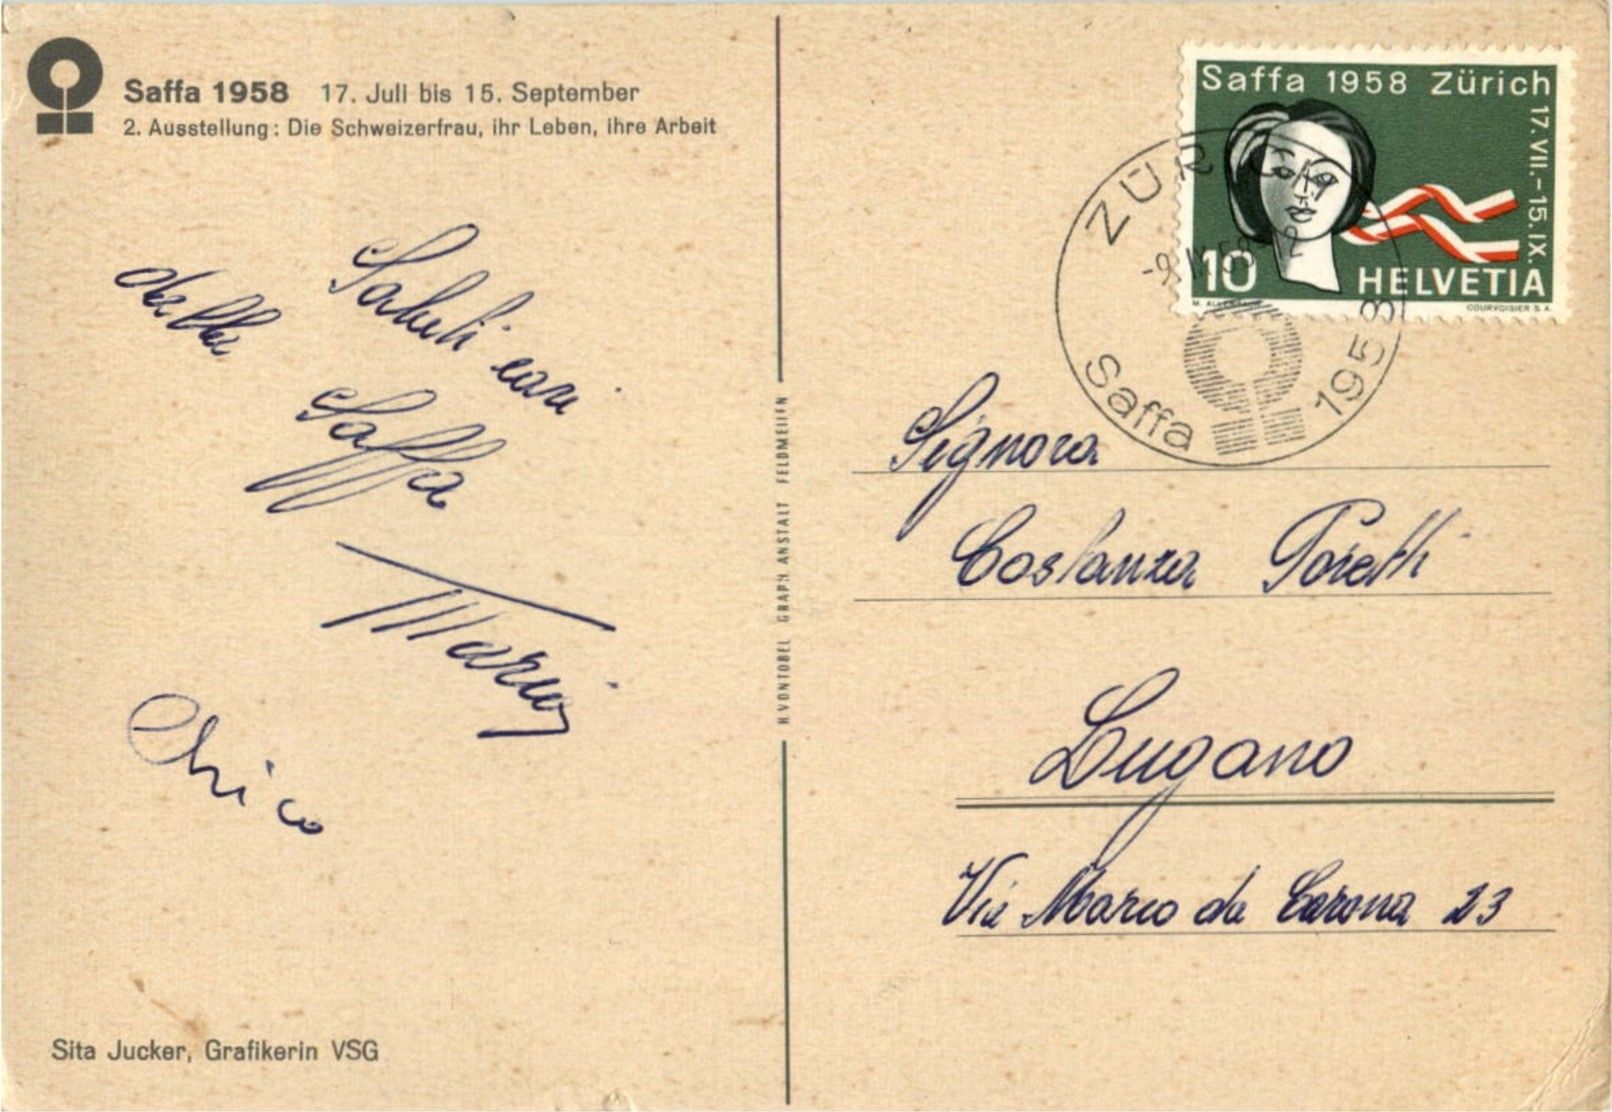 Saffa 1958 17. Juli bis 15. September
2. Ausstellung: Die Schweizerfrau, ihr Leben, ihre Arbeit
Saluti cari
dalla
Saffa
Chico
Sita Jucker, Grafikerin VSG
H. VONTOBEL GRAPH ANSTALT FELDMEILEN
Saffa 1958 Zürich
17. VII.–15. IX.
10 HELVETIA
COURVOISIER S.A.
ZÜRICH
Saffa 1958
Signora
Costanza Poretti
Lugano
Via Marco da Carona 23